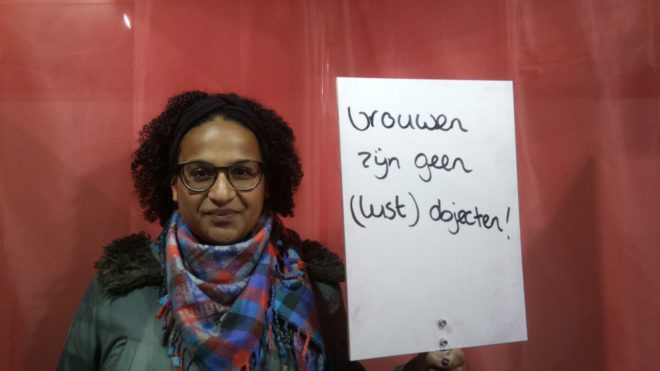 Vrouwen
zijn geen
(lust) objecten!